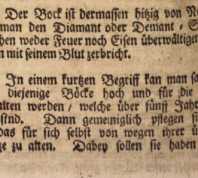 Der Bock ist dermassen hitzig von
man den Diamant oder Demant
chen weder Feuer noch Eisen überwältige
man mit seinem Blut zerbricht.
In einem kurtzen Begriff kan man
diejenige Böcke hoch und für die
alten werden / welche über fünff Jahr
sind. Dann gemeiniglich pflegen
Das für sich selbst von wegen ihrer
ge zu alten. Dabey sollen sie haben